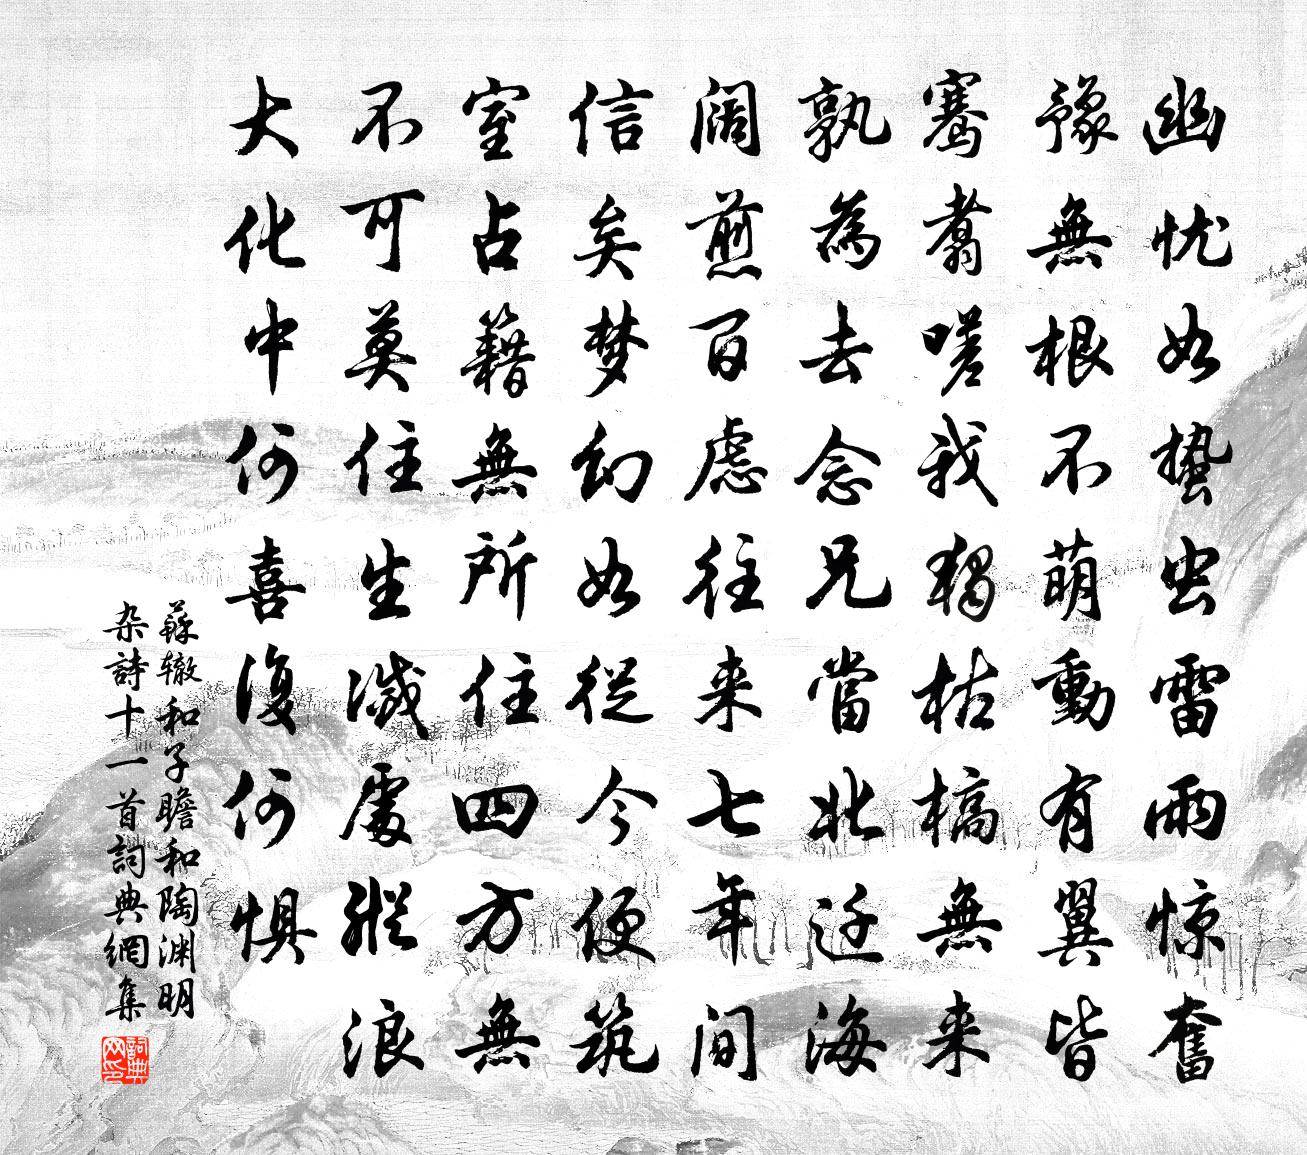 幽忧如蛰虫雷雨惊奮
豫無根不萌動有翼皆
騫翥嗟我獨枯槁無来
孰為去念兄當北迁海
阔煎百慮往来七年间
信矣梦幻如從今便筑
室占籍無所住四方無
不可莫住生滅處縱浪
大化中何喜復何惧
蘇辙和子瞻和陶渊明
杂詩十一首詞典網集
詞典
网印